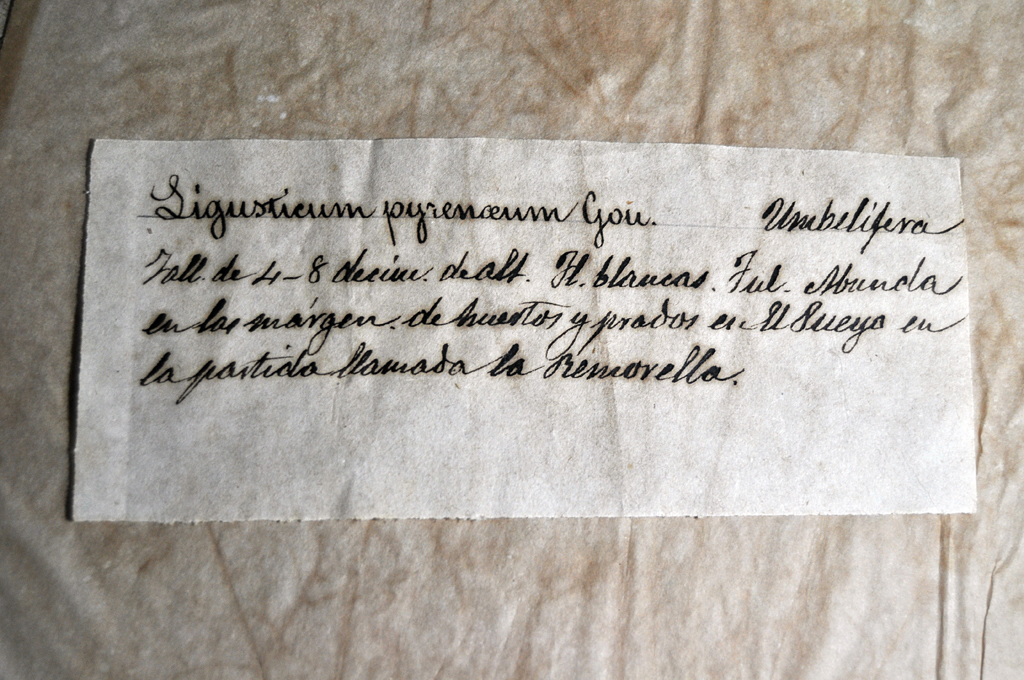 Ligusticum pyrenæum Gou. Umbelífera
Tall. de 4-8 decím. de alt. Fl. blancas. Jul. Abunda
en los márgen. de huertos y prados en El Pueyo en
la partida llamada la Remorella.